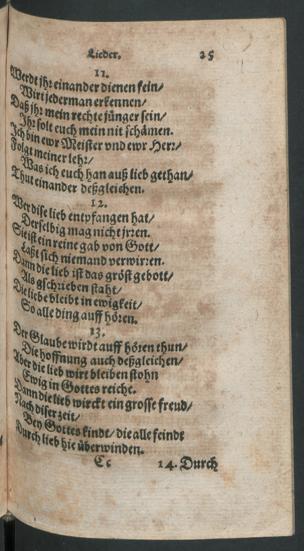 Lieder. 25
11.
Werdt jhr einander dienen fein/
Wirt jederman erkennen/
Daß jhr mein rechte jünger sein/
Jhr solt euch mein nit schämen.
Ich bin ewr Meister vnd ewr Herr/
Folgt meiner lehr/
Was ich euch han auß lieb gethan/
Thut einander deßgleichen.
12.
Wer dise lieb entpfangen hat/
Derselbig mag nicht jrren.
Sie ist ein reine gab von Gott/
Laßt sich niemand verwirren.
Dann die lieb ist das gröst gebott/
Als gschrieben staht/
Die liebe bleibt in ewigkeit/
So alle ding auff hören.
13.
Der Glaube wirdt auff hören thun/
Die hoffnung auch deßgleichen/
Aber die lieb wirt bleiben stohn
Ewig in Gottes reiche.
Dann die lieb wirckt ein grosse freud/
Nach diser zeit/
Bey Gottes kindt/ die alle feindt
Durch lieb hie überwinden.
Cc 14. Durch